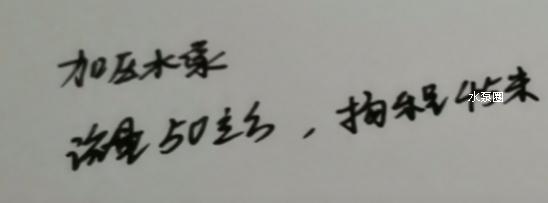 加压水泵
流量50立方，扬程45米
水泵圈